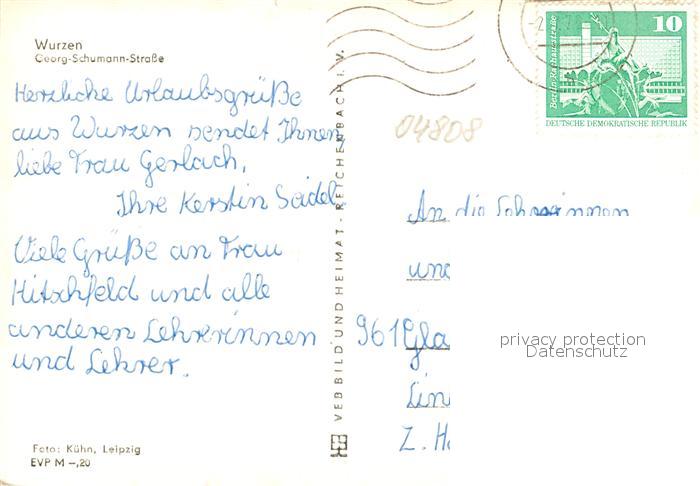 Wurzen
Georg-Schumann-Straße
Herzliche Urlaubsgrüße
aus Wurzen sendet Ihnen,
liebe Frau Gerlach,
Ihre Kerstin Seidel.
Viele Grüße an Frau
Hitschfeld und alle
anderen Lehrerinnen
und Lehrer.
Foto: Kühn, Leipzig
EVP M –,20
VEB BILD UND HEIMAT · REICHENBACH I. V.
04808
10
Berlin Rathausstraße
DEUTSCHE DEMOKRATISCHE REPUBLIK
An die Lehrerinnen
und
961 Gla
Z. H
privacy protection
Datenschutz